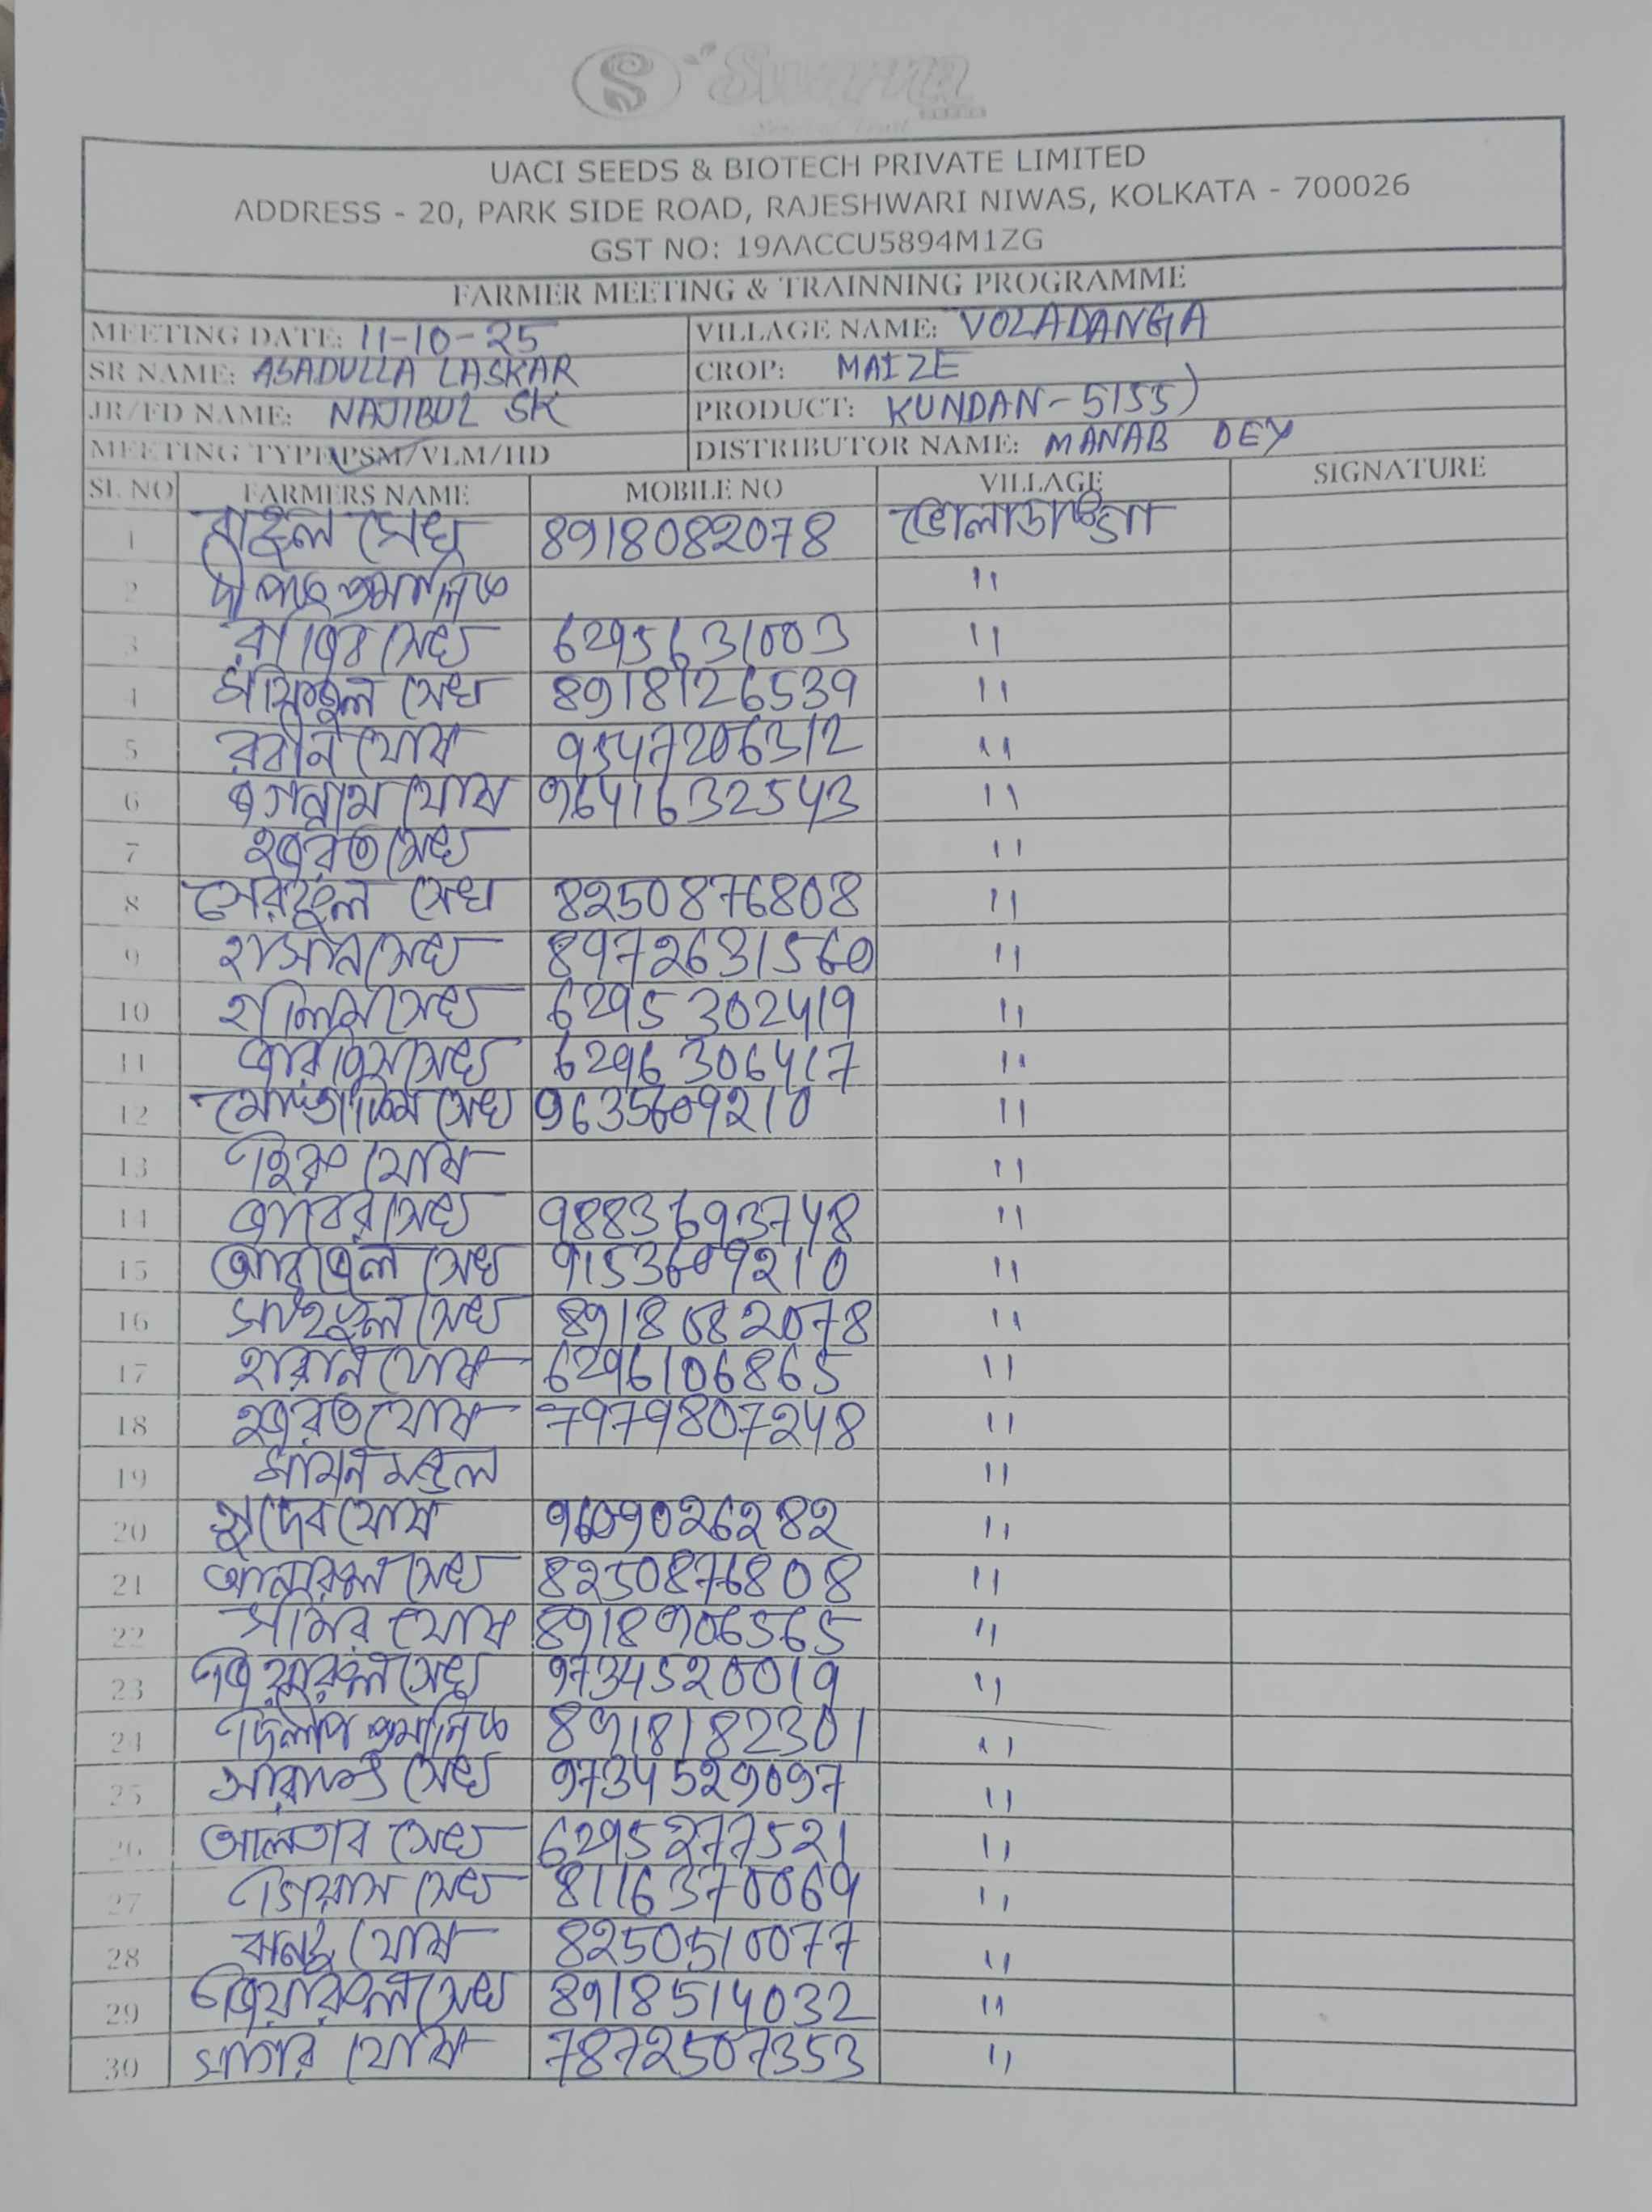 S Swarna
UACI SEEDS & BIOTECH PRIVATE LIMITED
ADDRESS - 20, PARK SIDE ROAD, RAJESHWARI NIWAS, KOLKATA - 700026
GST NO: 19AACCU5894M1ZG
FARMER MEETING & TRAINNING PROGRAMME
MEETING DATE: 11-10-25 VILLAGE NAME: VOLADANGA
SR NAME: ASADULLA LASKAR CROP: MAIZE
JR/FD NAME: NAJIBUL SK PRODUCT: KUNDAN-5155)
MEETING TYPE PSM/VLM/HD DISTRIBUTOR NAME: MANAB DEY
SL NO FARMERS NAME MOBILE NO VILLAGE SIGNATURE
1 রাহুল সেখ 8918082078 ভোলাডাঙ্গা
2 "
3 রাজিব সেখ 6295631003 "
4 সেখ 8918126539 "
5 রবীন ঘোষ 9547206312 "
6 জগন্নাথ ঘোষ 9641632543 "
7 হজরত সেখ "
8 সেখ 8250876808 "
9 হাসান সেখ 8972631560 "
10 হালিম সেখ 6295302419 "
11 সেখ 6296306417 "
12 সেখ 9635609210 "
13 হিরু ঘোষ "
14 জাবের সেখ 9883693748 "
15 সেখ 9153609210 "
16 সাইফুল সেখ 8918082078 "
17 হারান ঘোষ 6296106865 "
18 হজরত ঘোষ 7979807248 "
19 মন্ডল "
20 সুদেব ঘোষ 9609026282 "
21 আনারুল সেখ 8250876808 "
22 সমির ঘোষ 8918906565 "
23 সেখ 9734520019 "
24 দিলীপ 8918182301 "
25 সেখ 9734529097 "
26 আলতাব সেখ 6295277521 "
27 গিয়াস সেখ 8116370069 "
28 ঝন্টু ঘোষ 8250510077 "
29 জিয়ারুল সেখ 8918514032 "
30 সাগর ঘোষ 7872507353 "